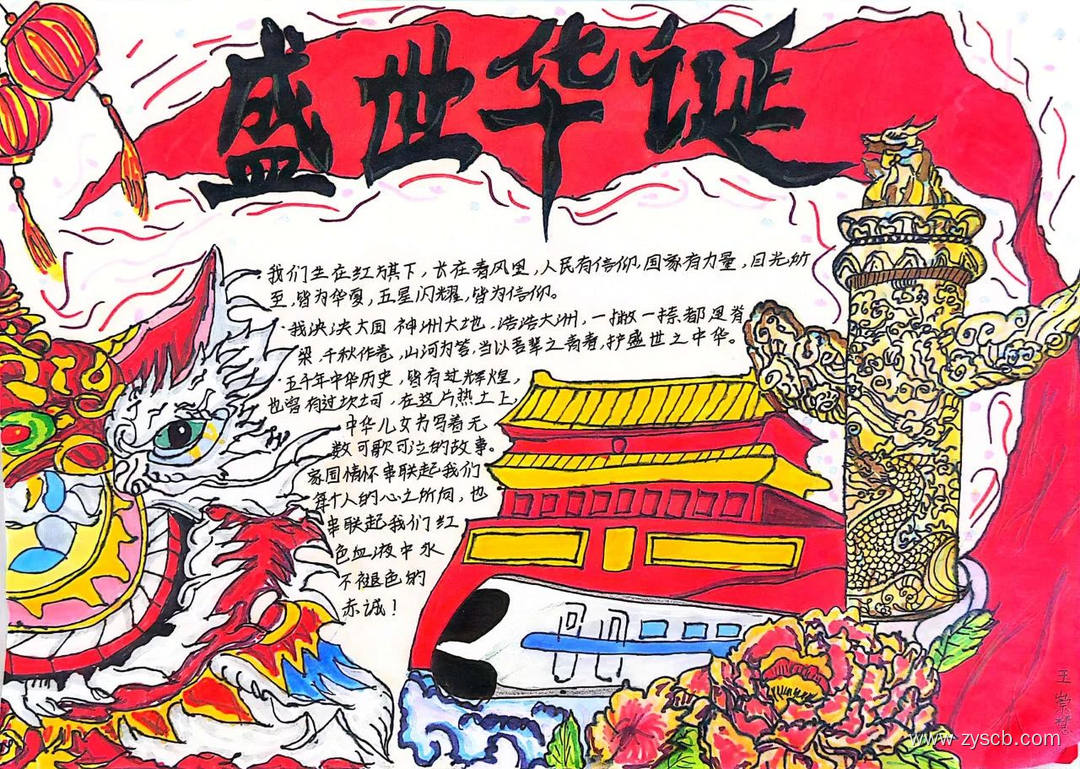 盛世华诞
·我们生在红旗下，长在春风里，人民有信仰，国家有力量，目光所
至，皆为华夏，五星闪耀，皆为信仰。
·我泱泱大国 神洲大地，浩浩大洲，一撇一捺都是脊
梁，千秋作卷，山河为答，当以吾辈之青春，护盛世之中华。
·五千年中华历史，皆有过辉煌，
也曾有过坎坷，在这片热土上，
中华儿女书写着无
数可歌可泣的故事。
家国情怀串联起我们
每个人的心之所向，也
串联起我们红
色血液中永
不褪色的
赤诚！
www.zyscb.com